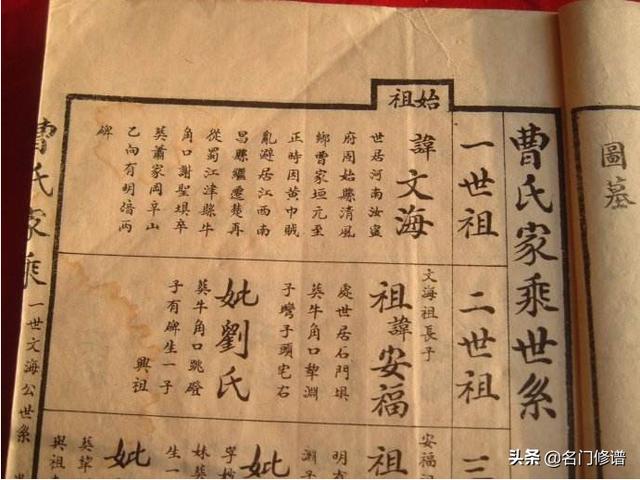 圖墓
始祖
曹氏家乘世系
一世祖
諱文海
世居河南汝寧
府固始縣清風
鄉曹家垣元至
正時因黃巾賊
亂避居江西南
昌縣繼遷楚再
從蜀江津縣牛
角口謝聖埧卒
葬蕭家岡辛山
乙向有明堷兩
碑
二世祖
文海祖長子
祖諱安福
處世居石門埧
葬牛角口犂淵
子灣子頭宅右
妣劉氏
葬牛角口跳磴
子有碑生一子
興祖
三
安福
祖
明
淵子
妣
妹葬
生一
妣
葬
與祖
曹氏家乘
一世文海公世系
头条 @名门修谱